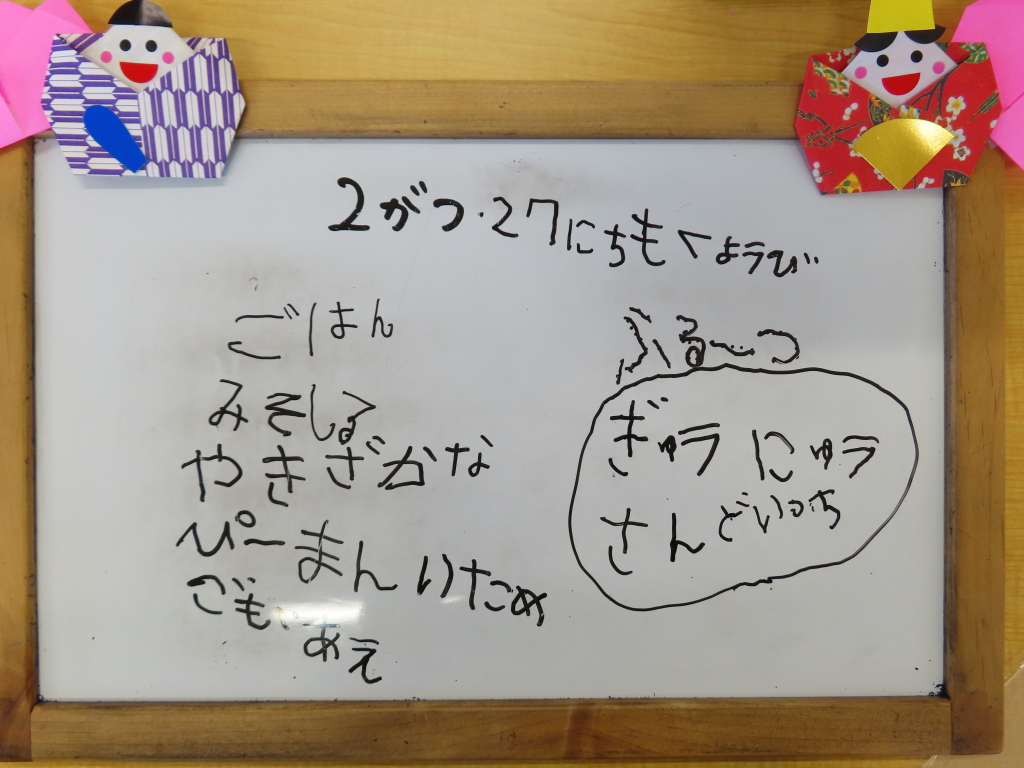 2がつ・27にちもくようび
ごはん
みそしる
やきざかな
ぴーまんいため
ごもくあえ
ふるーつ
ぎゅうにゅう
さんどいっち